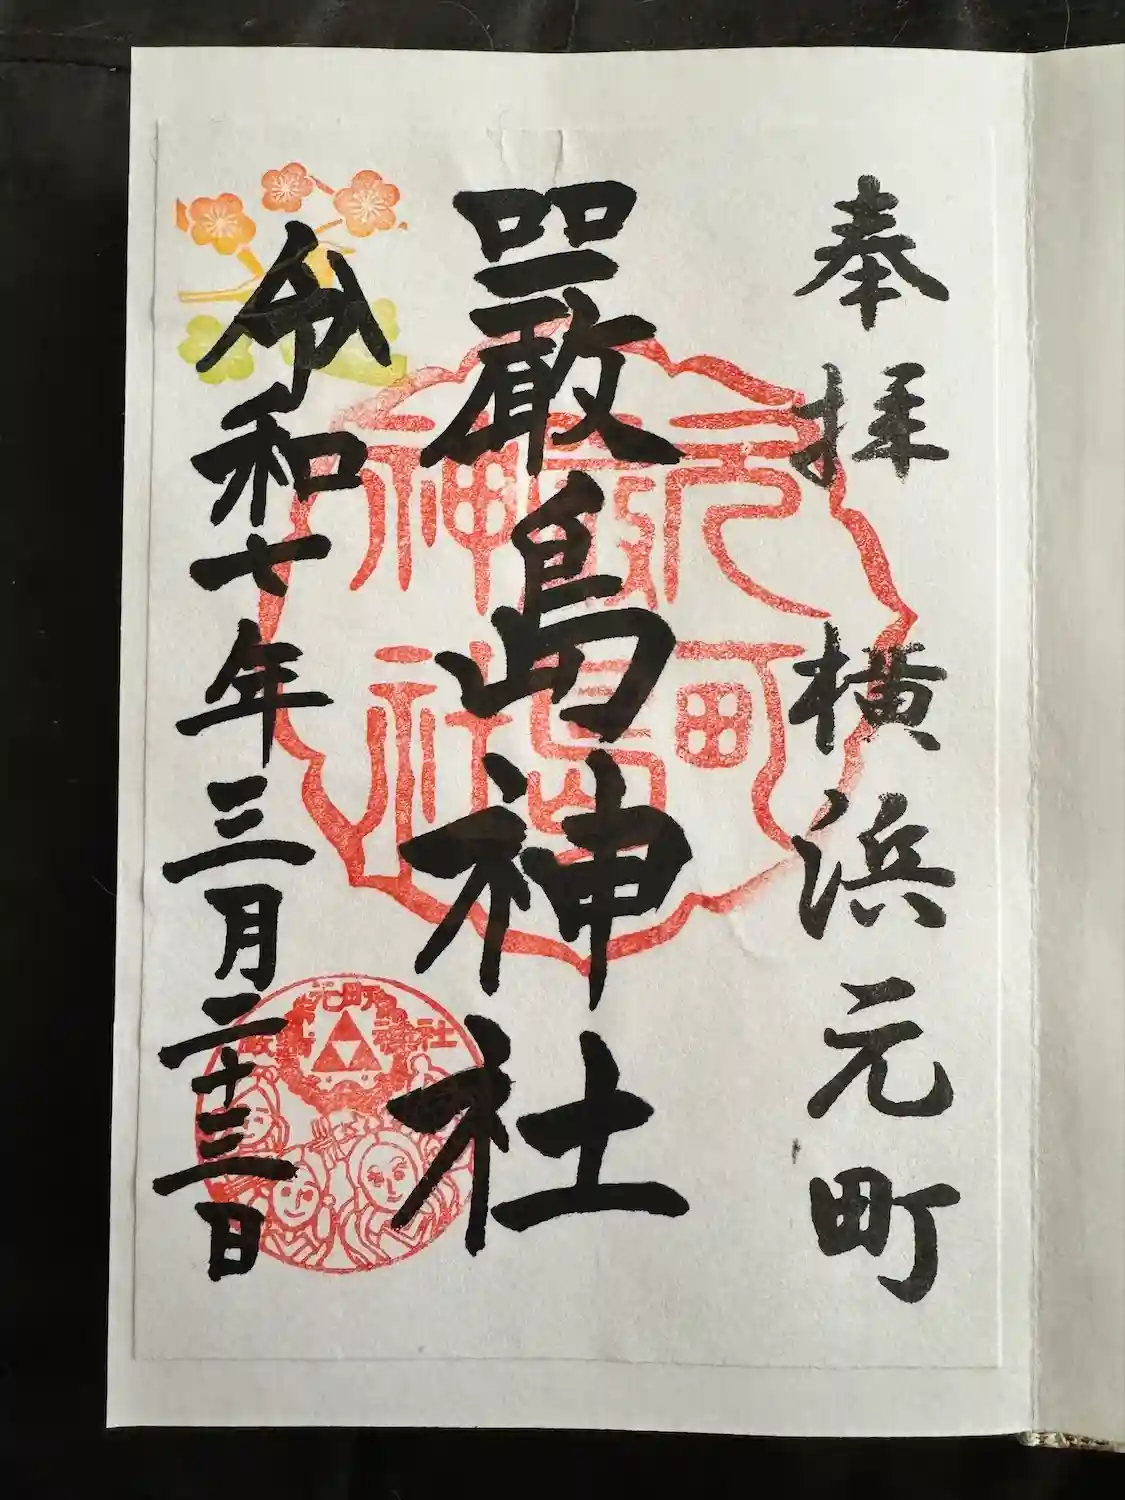 奉拝 横浜元町
嚴島神社
令和七年三月二十三日
元町
嚴島神社
元町
嚴島
神社